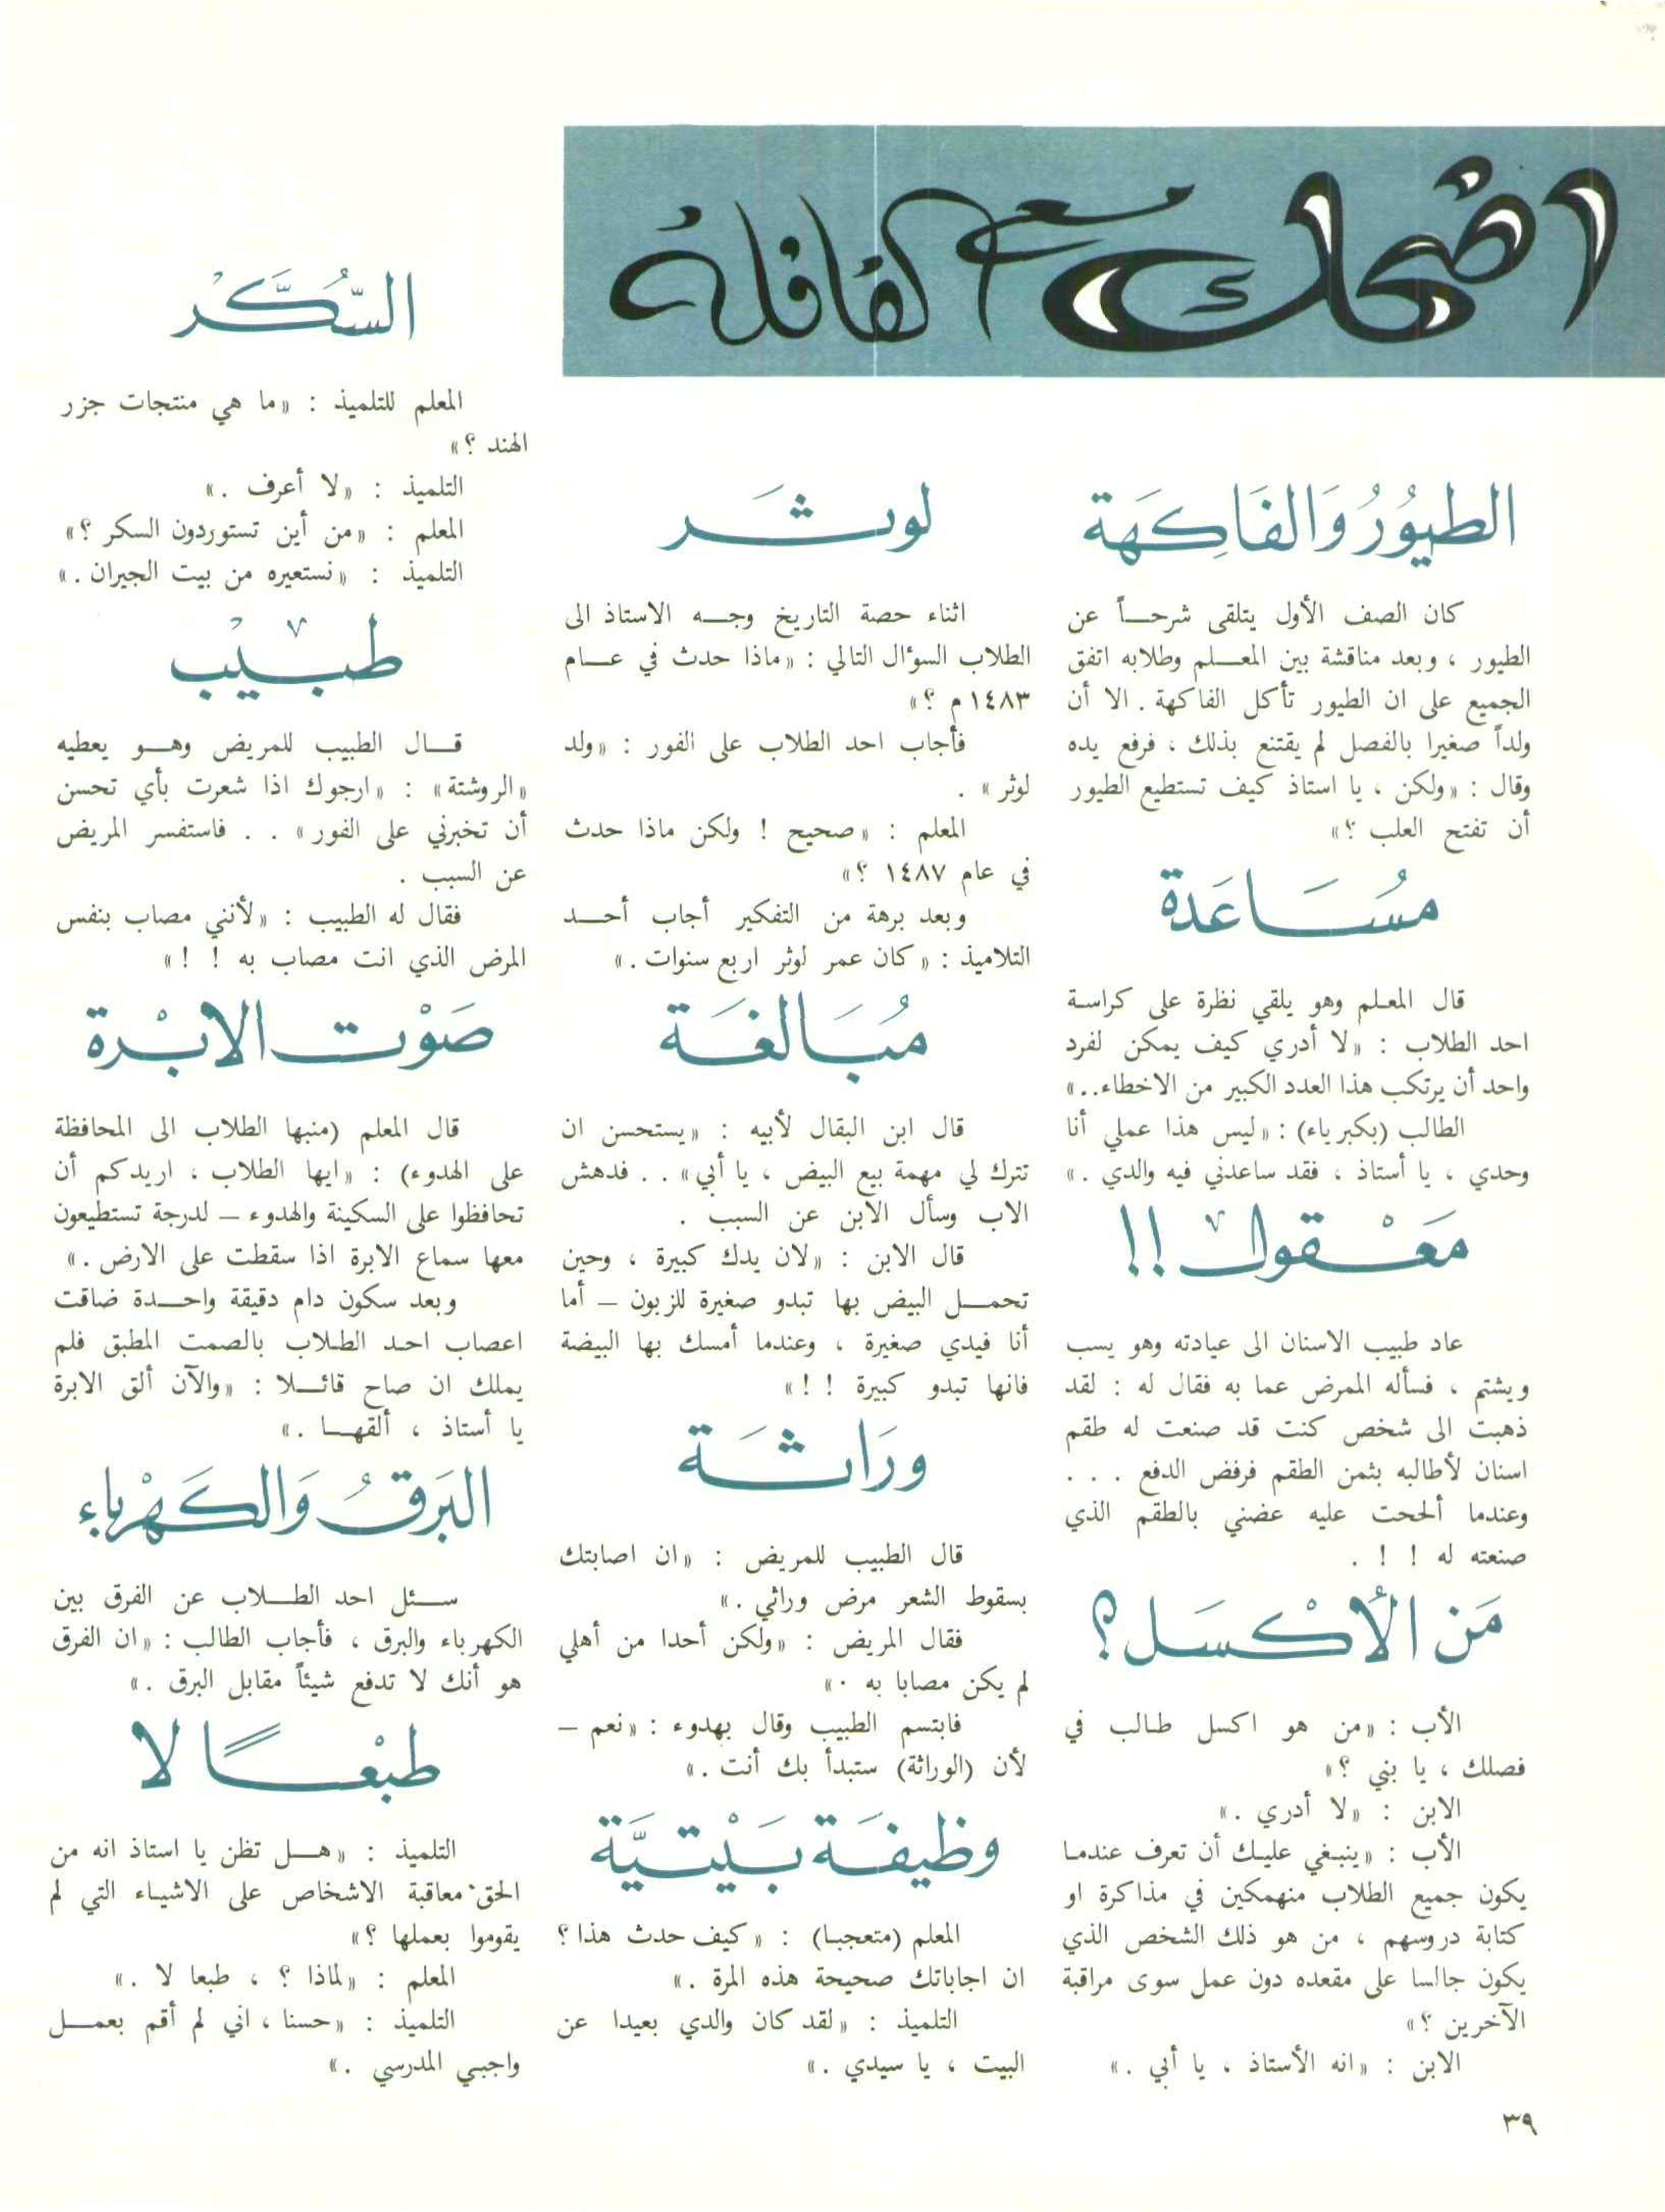 اضحك مع القافلة
الطيور وَالفَاكِهَة
كان الصف الأول يتلقى شرحــاً عن
الطيور ، وبعد مناقشة بين المعــلم وطلابه اتفق
الجميع على ان الطيور تأكل الفاكهة . الا أن
ولداً صغيرا بالفصل لم يقتنع بذلك ، فرفع يده
وقال : «ولكن ، يا استاذ كيف تستطيع الطيور
أن تفتح العلب ؟»
مُسَــاعَدة
قال المعلم وهو يلقي نظرة على كراسة
احد الطلاب : «لا أدري كيف يمكن لفرد
واحد أن يرتكب هذا العدد الكبير من الاخطاء..»
الطالب (بكبرياء) : «ليس هذا عملي أنا
وحدي ، يا أستاذ ، فقد ساعدني فيه والدي .»
مَعْـقول !!
عاد طبيب الاسنان الى عيادته وهو يسب
ويشتم ، فسأله الممرض عما به فقال له : لقد
ذهبت الى شخص كنت قد صنعت له طقم
اسنان لأطالبه بثمن الطقم فرفض الدفع . . .
وعندما ألححت عليه عضني بالطقم الذي
صنعته له ! ! .
مَن الأكْسَـل ؟
الأب : «من هو اكسل طالب في
فصلك ، يا بني ؟»
الابن : «لا أدري .»
الأب : «ينبغي عليك أن تعرف عندما
يكون جميع الطلاب منهمكين في مذاكرة او
كتابة دروسهم ، من هو ذلك الشخص الذي
يكون جالسا على مقعده دون عمل سوى مراقبة
الآخرين ؟»
الابن : «انه الأستاذ ، يا أبي .»
لوثَــر
اثناء حصة التاريخ وجــه الاستاذ الى
الطلاب السؤال التالي : «ماذا حدث في عــام
١٤٨٣ م ؟»
فأجاب احد الطلاب على الفور : «ولد
لوثر» .
المعلم : «صحيح ! ولكن ماذا حدث
في عام ١٤٨٧ ؟»
وبعد برهة من التفكير أجاب أحــد
التلاميذ : «كان عمر لوثر اربع سنوات .»
مُبَـالغَـة
قال ابن البقال لأبيه : «يستحسن ان
تترك لي مهمة بيع البيض ، يا أبي» . . فدهش
الاب وسأل الابن عن السبب .
قال الابن : «لان يدك كبيرة ، وحين
تحمــل البيض بها تبدو صغيرة للزبون — أما
أنا فيدي صغيرة ، وعندما أمسك بها البيضة
فانها تبدو كبيرة ! !»
ورَاثَـة
قال الطبيب للمريض : «ان اصابتك
بسقوط الشعر مرض وراثي .»
فقال المريض : «ولكن أحدا من أهلي
لم يكن مصابا به .»
فابتسم الطبيب وقال بهدوء : «نعم —
لأن (الوراثة) ستبدأ بك أنت .»
وظيفَـة بَيْتيَّة
المعلم (متعجبا) : «كيف حدث هذا ؟
ان اجاباتك صحيحة هذه المرة .»
التلميذ : «لقد كان والدي بعيدا عن
البيت ، يا سيدي .»
السُّكَّـر
المعلم للتلميذ : «ما هي منتجات جزر
الهند ؟»
التلميذ : «لا أعرف .»
المعلم : «من أين تستوردون السكر ؟»
التلميذ : «نستعيره من بيت الجيران .»
طبـيْب
قــال الطبيب للمريض وهــو يعطيه
«الروشتة» : «ارجوك اذا شعرت بأي تحسن
أن تخبرني على الفور» . . فاستفسر المريض
عن السبب .
فقال له الطبيب : «لأنني مصاب بنفس
المرض الذي انت مصاب به ! !»
صَوْت الابْـرة
قال المعلم (منبها الطلاب الى المحافظة
على الهدوء) : «ايها الطلاب ، اريدكم أن
تحافظوا على السكينة والهدوء — لدرجة تستطيعون
معها سماع الابرة اذا سقطت على الارض .»
وبعد سكون دام دقيقة واحــدة ضاقت
اعصاب احد الطلاب بالصمت المطبق فلم
يملك ان صاح قائــلا : «والآن ألق الابرة
يا أستاذ ، ألقهــا .»
البَرقُ وَالكَهْرباء
ســئل احد الطــلاب عن الفرق بين
الكهرباء والبرق ، فأجاب الطالب : «ان الفرق
هو أنك لا تدفع شيئاً مقابل البرق .»
طبْعـًا لا
التلميذ : «هــل تظن يا استاذ انه من
الحق معاقبة الاشخاص على الاشياء التي لم
يقوموا بعملها ؟»
المعلم : «لماذا ؟ ، طبعا لا .»
التلميذ : «حسنا ، اني لم أقم بعمــل
واجبي المدرسي .»
٣٩